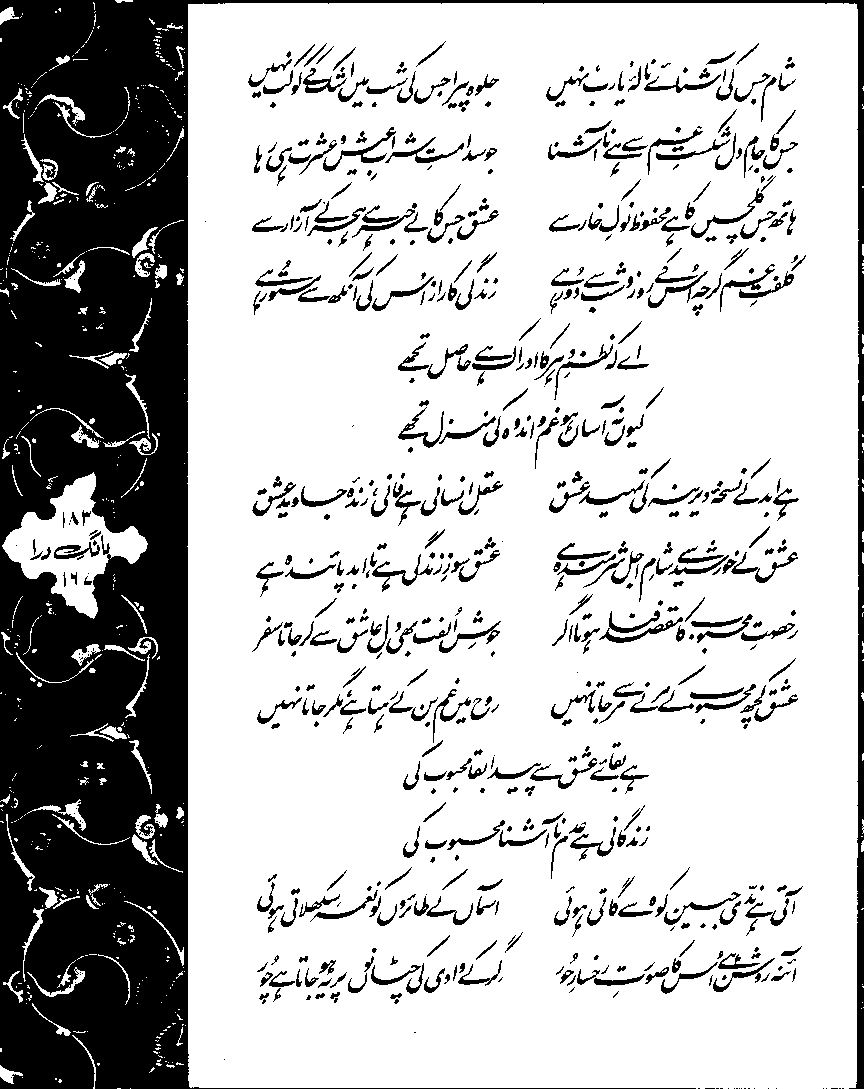 شام جس کی آشنائے نالۂ یا رب نہیں جلوہ پیرا جس کی شب میں اشک کے کوکب نہیں
جس کا جامِ دل شکستِ غم سے ہے ناآشنا جو سدا مستِ شرابِ عیش و عشرت ہی رہا
ہاتھ جس گلچیں کا ہے محفوظ نوکِ خار سے عشق جس کا بے خبر ہے ہجر کے آزار سے
کلفتِ غم گرچہ اُس کے روز و شب سے دُور ہے زندگی کا راز اُس کی آنکھ سے مستُور ہے
اے کہ نظمِ دہر کا ادراک ہے حاصل تجھے
کیوں نہ آساں ہو غم و اندوہ کی منزل تجھے
ہے ابد کے نسخۂ دیرینہ کی تمہید عشق عقلِ انسانی ہے فانی، زندۂ جاوید عشق
عشق کے خورشید سے شامِ اجل شرمندہ ہے عشق سوزِ زندگی ہے، تا ابد پائندہ ہے
رخصتِ محبوب کا مقصد فنا ہوتا اگر جوشِ اُلفت بھی دلِ عاشق سے کر جاتا سفر
عشق کچھ محبوب کے مرنے سے مر جاتا نہیں روح میں غم بن کے رہتا ہے، مگر جاتا نہیں
ہے بقائے عشق سے پیدا بقا محبوب کی
زندگانی ہے عدم ناآشنا محبوب کی
آتی ہے ندّی جبینِ کوہ سے گاتی ہوئی آسماں کے طائروں کو نغمہ سکھلاتی ہوئی
آئنہ روشن ہے اُس کا صورتِ رخسارِ حُور گر کے وادی کی چٹانوں پر یہ ہو جاتا ہے چُور
۱۸۳
بانگِ درا
۱۶۷